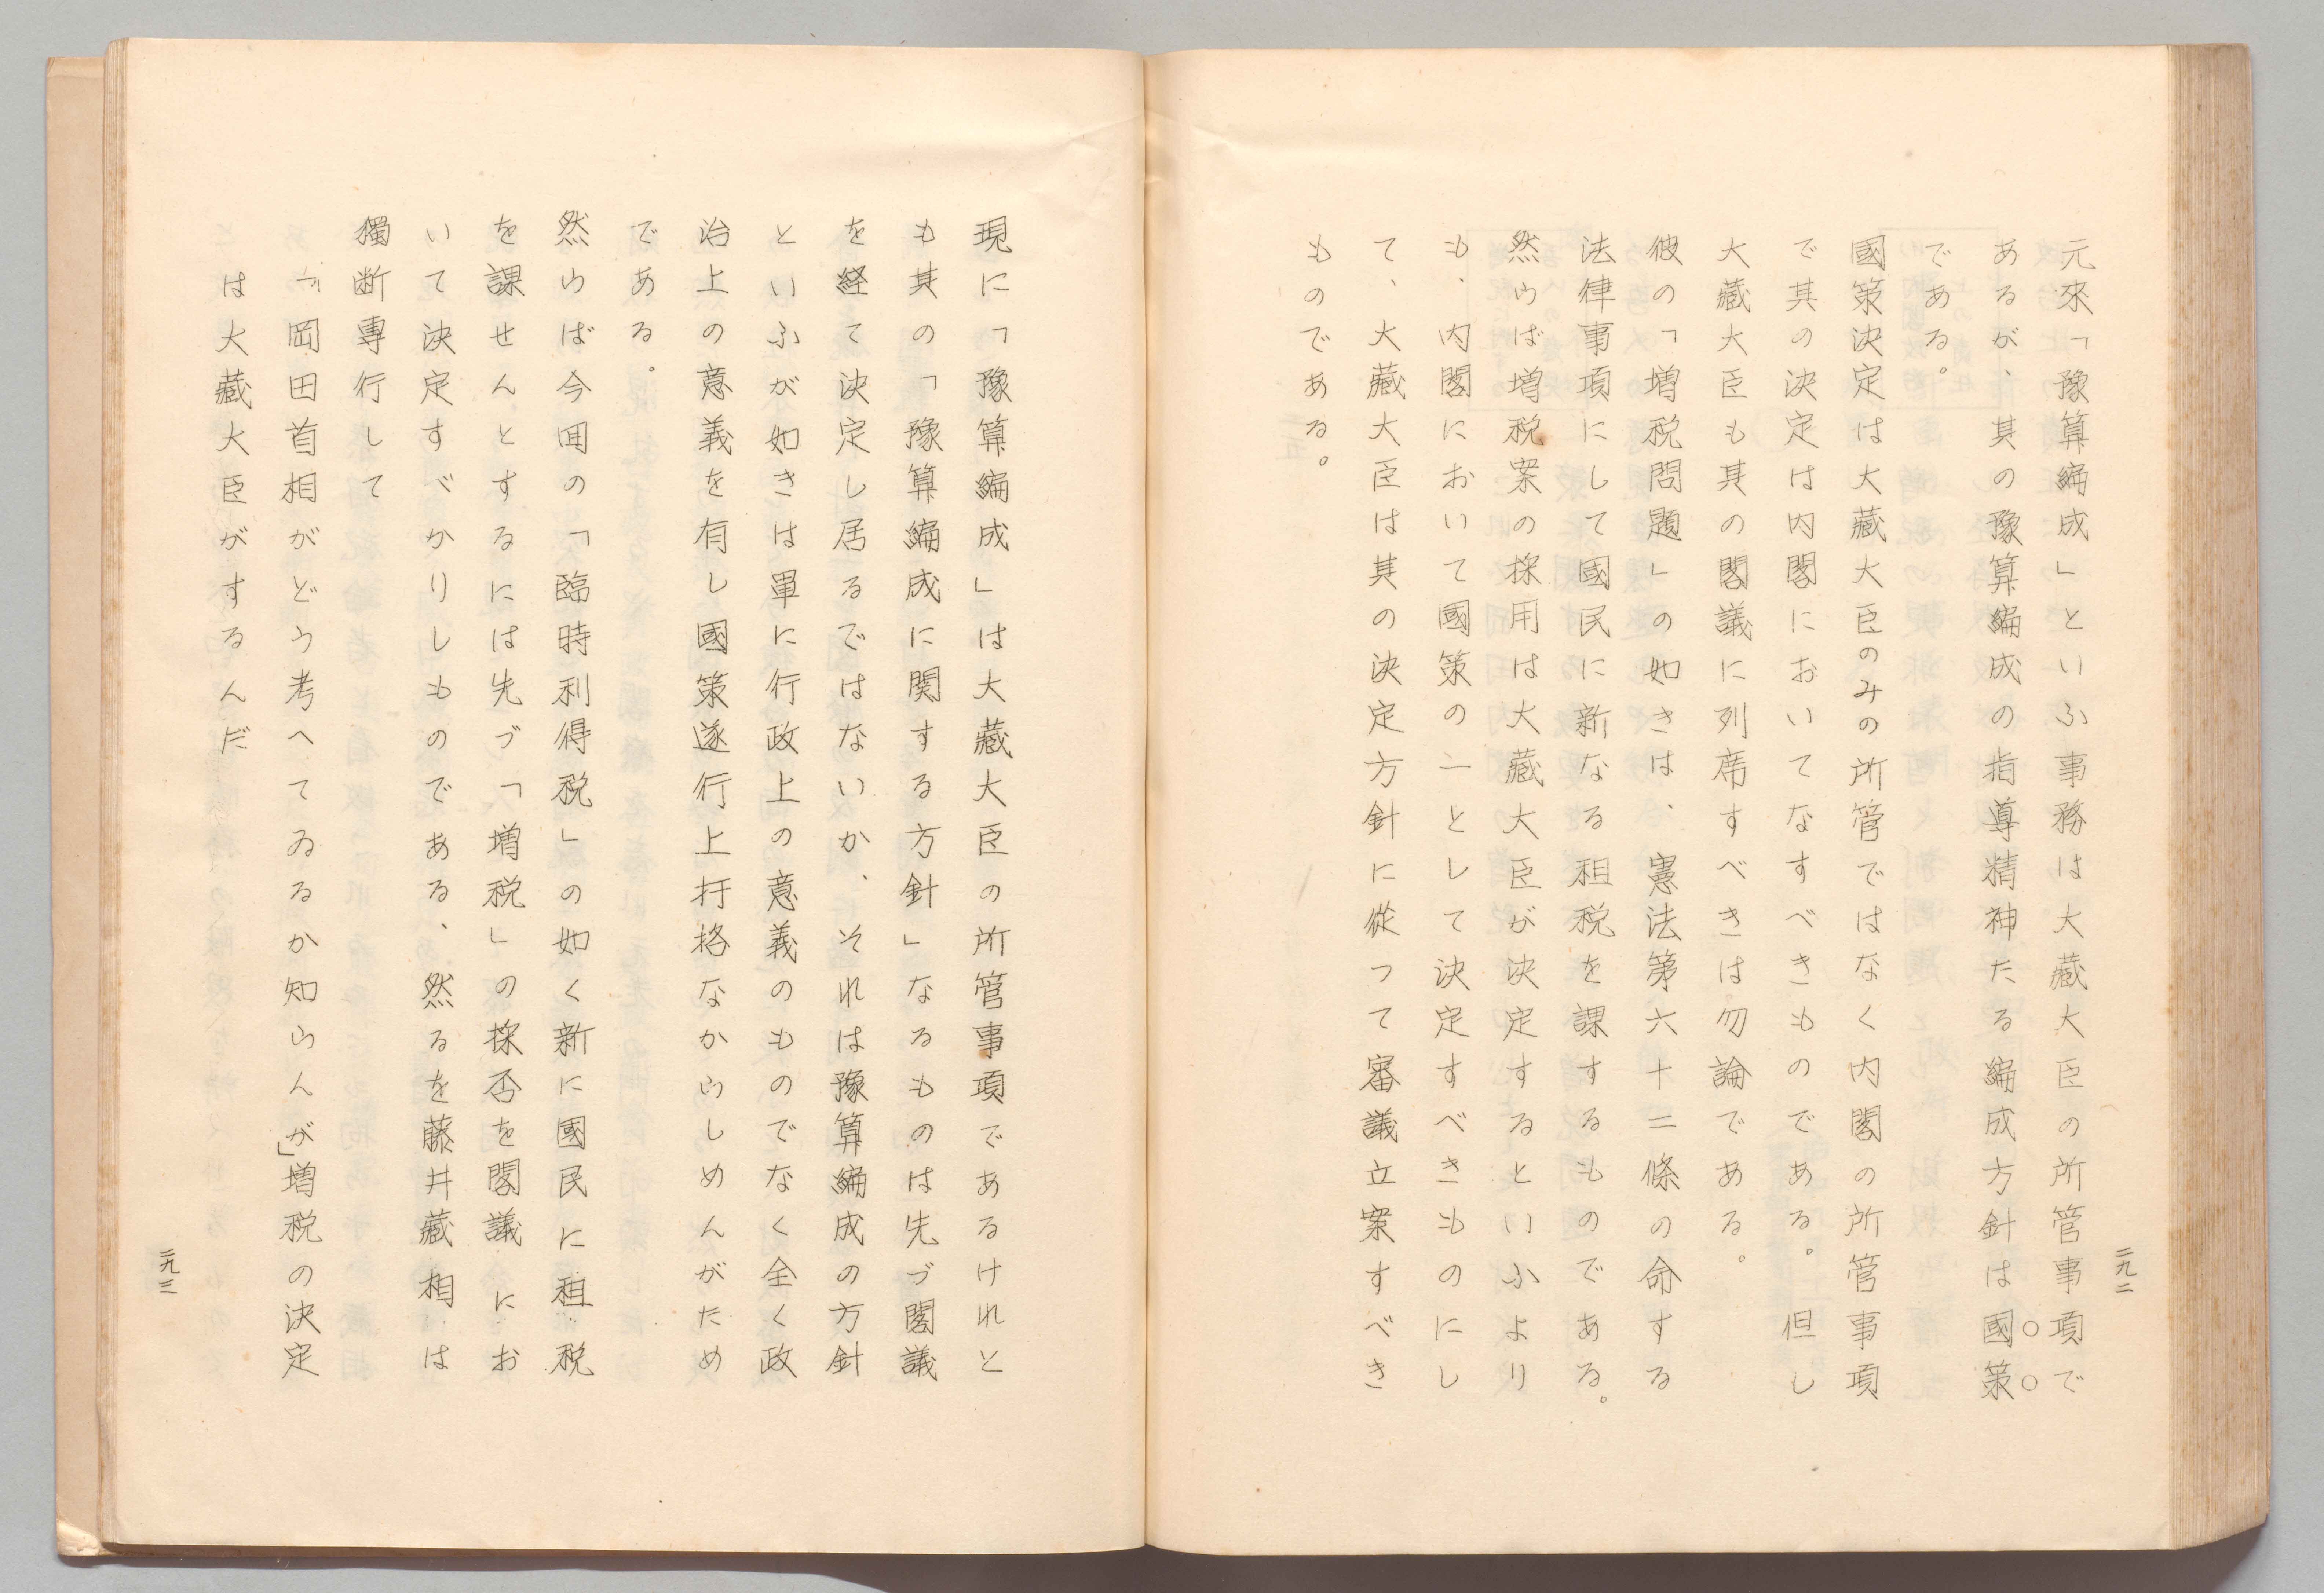 二九二
元來「豫算編成」といふ事務は大藏大臣の所管事項で
あるが、其の豫算編成の指導精神たる編成方針は國策
である。
國策決定は大藏大臣のみの所管ではなく内閣の所管事項
で其の決定は内閣においてなすべきものである。但し
大藏大臣も其の閣議に列席すべきは勿論である。
彼の「増税問題」の如きは、憲法第六十二條の命する
法律事項にして國民に新なる租税を課するものである。
然らば増税案の採用は大藏大臣が決定するといふより
も、内閣において國策の一として決定すべきものにし
て、大藏大臣は其の決定方針に從つて審議立案すべき
ものである。
現に「豫算編成」は大藏大臣の所管事項であるけれと
も其の「豫算編成に関する方針」なるものは先づ閣議
を経て決定し居るではないか、それは豫算編成の方針
といふが如きは單に行政上の意義のものでなく全く政
治上の意義を有し國策遂行上扞格なからしめんがため
である。
然らば今囬の「臨時利得税」の如く新に國民に租税
を課せんとするには先づ「増税」の採否を閣議にお
いて決定すべかりしものである、然るを藤井藏相は
獨断專行して
「岡田首相がどう考へてゐるか知らんが」増税の決定
は大藏大臣がするんだ
二九三